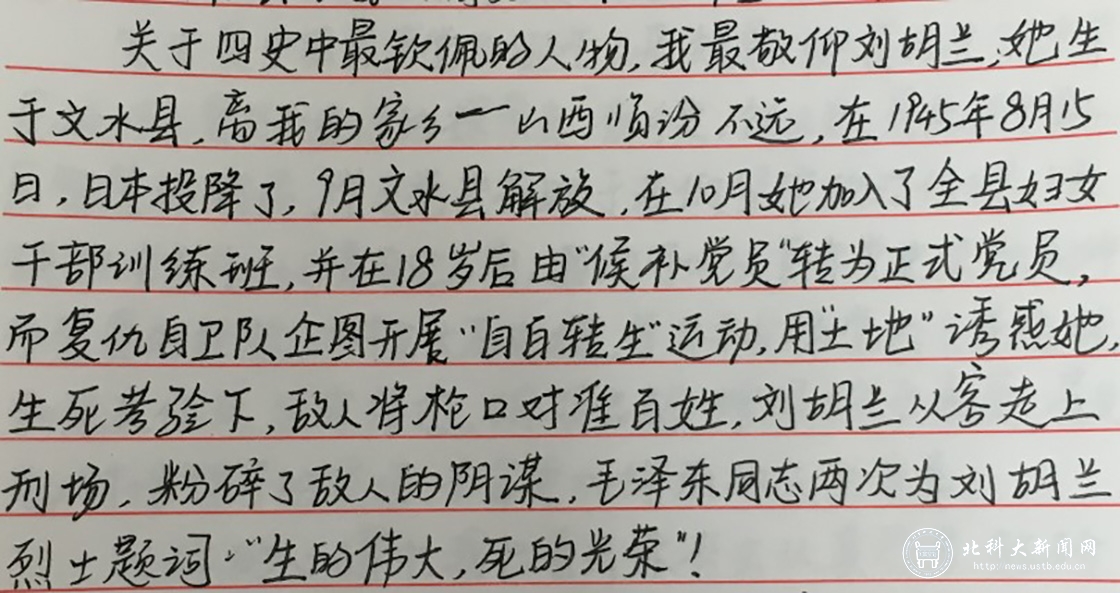 关于四史中最钦佩的人物,我最敬仰刘胡兰,她生
于文水县,离我的家乡一山西临汾不远,在1945年8月15
日,日本投降了,9月文水县解放,在10月她加入了全县妇女
干部训练班,并在18岁后由"候补党员"转为正式党员,
而复仇自卫队企图开展"自白转生"运动,用"土地"诱惑她,
生死考验下,敌人将枪口对准百姓,刘胡兰从容走上
刑场,粉碎了敌人的阴谋,毛泽东同志两次为刘胡兰
烈士题词:"生的伟大,死的光荣"!
北科大新闻网
http://news.ustb.edu.cn